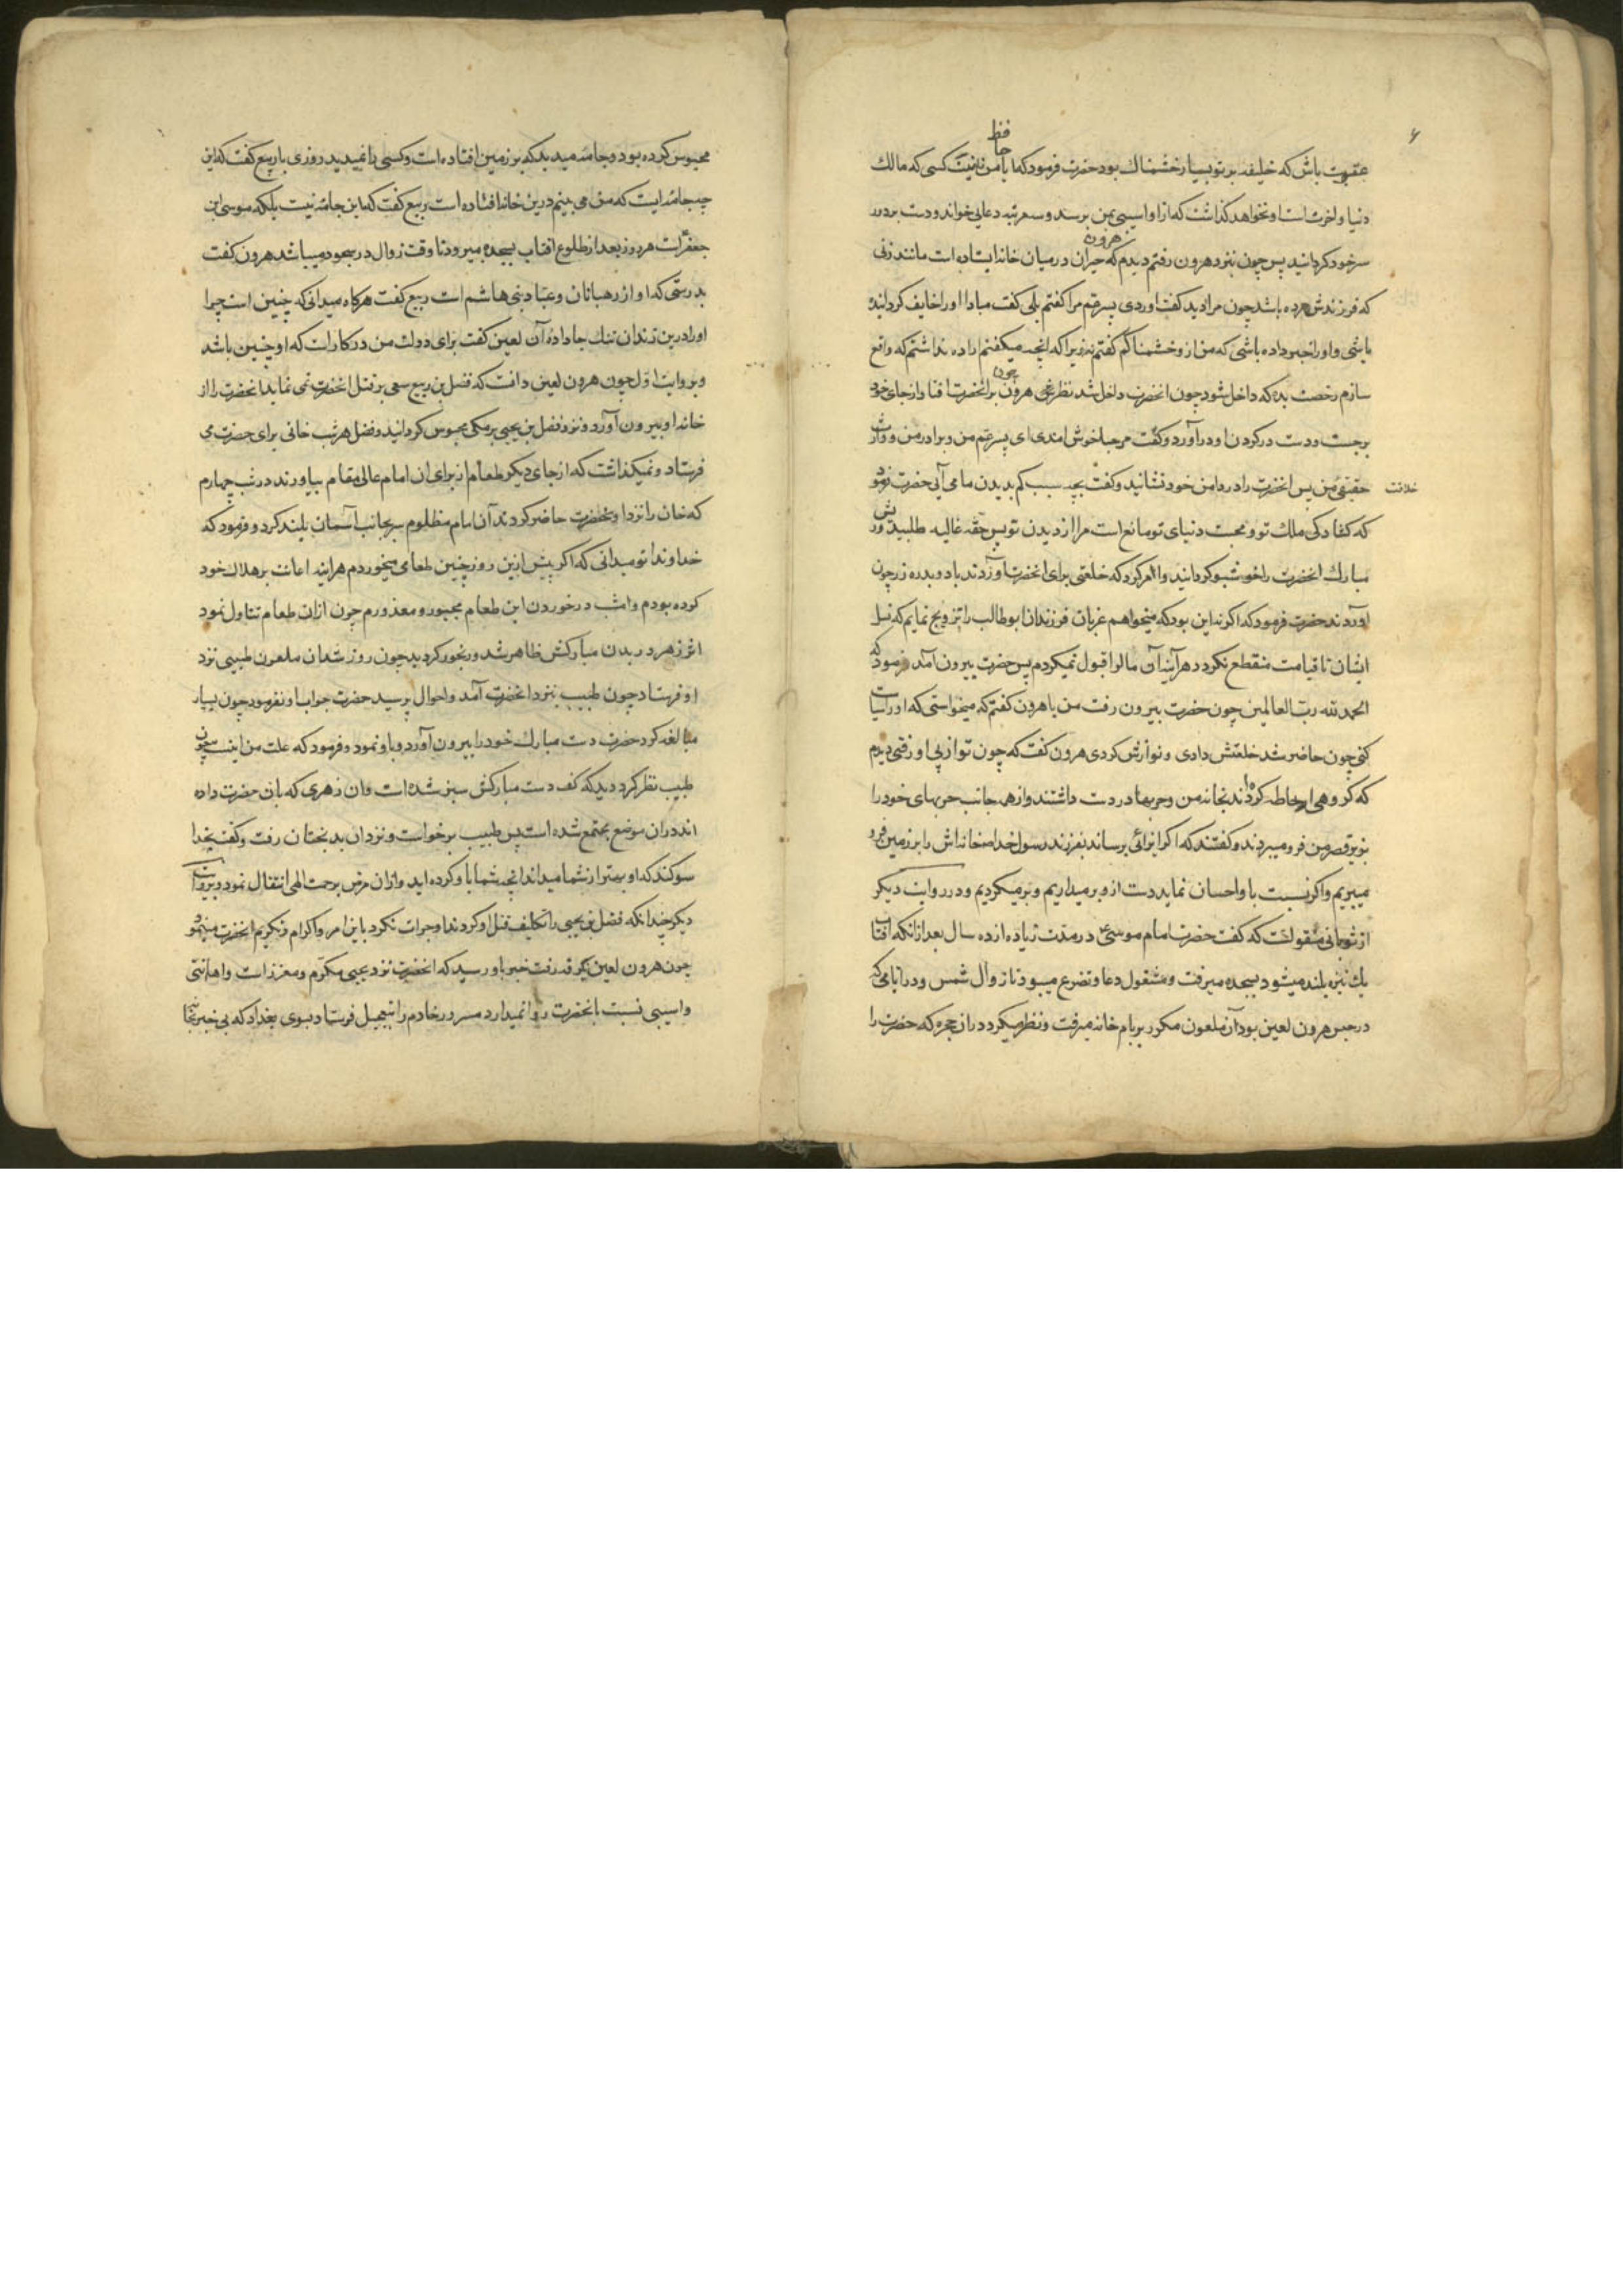 ۶
عقوبت باش که خلیفه بر تو بسیار خشمناک بود حضرت فرمود که ایا با من نیست کسی که مالک
حافظ
دنیا و اخرتست او نخواهد گذاشت که از او اسیبی بمن برسد و سه مرتبه دعایی خواند و دست بر دور
سر خود کردانید پس چون نزد هرون رفتم دیدم که حیران در میان خانه ایستاده است مانند زنی
هرون
که فرزندش مرده باشد چون مرا دید کفت اوردی پسر عم مرا کفتم بلی کفت مبادا او را خایف کردانیده
باشی و او را خبر داده باشی که من از او خشمناکم کفتم نه زیرا که انچه میکفتم اراده نداشتم که واقع
سازم رخصت بده که داخل شود چون انحضرت داخل شد نظر هرون بر انحضرت افتاد از جای خود
چون
برجست و دست در کردن او در آورد و کفت مرحبا خوش امدی ای پسر عم من و برادر من و وارث
خلافت
حقیقی من پس انحضرت را در دامن خود نشانید و کفت بچه سبب کم بدیدن ما می آیی حضرت فرمود
که کشادکی ملک تو و محبت دنیای تو مانع است مرا از دیدن تو پس حقه غالیه طلبید و ریش
مبارک انحضرت را خوشبو کردانید و امر کرد که خلعتی برای انحضرت آوردند با دو بدره زر چون
آوردند حضرت فرمود که اکر نه این بود که میخواهم عزبان فرزندان ابوطالب را تزویج نمایم که نسل
ایشان تا قیامت منقطع نکردد هر آینه آن مال را قبول نمیکردم پس حضرت بیرون آمد و فرمود که
الحمدلله رب العالمین چون حضرت بیرون رفت من با هرون کفتم که میخواستی که او را سیاست
کنی چون حاضر شد خلعتش دادی و نوازش کردی هرون کفت که چون تو از پی او رفتی دیدم
که کروهی احاطه کردند بخانه من و حربها در دست داشتند و از هر جانب حربهای خود را
بزیر قصر من فرو میبردند و کفتند که اکر ایذائی برساند بفرزند رسول خدا ص خانه اش را بر زمین فرو
میبریم و اکر نسبت باو احسان نماید دست از او بر میداریم و بر میکردیم و در روایت دیکر
از ثوبانی منقولست که کفت حضرت امام موسی ع در مدت زیاده از ده سال بعد از آنکه افتاب
یک نیزه بلند میشود بسجده میرفت و مشغول دعا و تضرع میبود تا زوال شمس و در ایامی که
در حبس هرون لعین بود آن ملعون مکرر بر بام خانه میرفت و نظر میکرد در ان حجره که حضرت را
محبوس کرده بود و جامه میدید که بر زمین افتاده است و کسی را نمیدید روزی با ربیع کفت که این
چه جامه ایست که من می بینم درین خانه افتاده است ربیع کفت که این جامه نیست بلکه موسی ابن
جعفر است هر روز بعد از طلوع افتاب بسجده میرود تا وقت زوال در سجود میباشد هرون کفت
بدرستی که او از رهبانان و عباد بنی هاشم است ربیع کفت هرکاه میدانی که چنین است چرا
او را درین زندان تنک جا داده آن لعین کفت برای دولت من در کار است که او چنین باشد
و بروایت اول چون هرون لعین دانست که فضل بن ربیع سعی بر قتل انحضرت نمی نماید انحضرت را از
خانه او بیرون آورد و نزد فضل بن یحیی برمکی محبوس کردانید و فضل هر شب خانی برای حضرت می
فرستاد و نمیکذاشت که از جای دیکر طعام از برای ان امام عالی مقام بیاورند در شب چهارم
که خان را نزد انحضرت حاضر کردند آن امام مظلوم سر بجانب آسمان بلند کرد و فرمود که
خداوندا تو میدانی که اکر پیش ازین روز چنین طعامی میخوردم هراینه اعانت بر هلاک خود
کرده بودم و امشب در خوردن این طعام مجبور و معذورم چون ازان طعام تناول نمود
اثر زهر در بدن مبارکش ظاهر شد و رنجور کردید چون روز شد ان ملعون طبیبی نزد
او فرستاد چون طبیب نزد انحضرت آمد و احوال پرسید حضرت جواب او نفرمود چون بسیار
مبالغه کرد حضرت دست مبارک خود را بیرون آورد و باو نمود و فرمود که علت من اینست چون
طبیب نظر کرد دید که کف دست مبارکش سبز شده است و ان زهری که بان حضرت داده
اند در ان موضع مجتمع شده است پس طبیب برخواست و نزد ان بدبختان رفت و کفت بخدا
سوکند که او بهتر از شما میداند انچه شما با او کرده اید و ازان مرض برحمت الهی انتقال نمود و بروایت
دیکر چندانکه فضل بن یحیی را تکلیف قتل او کردند او جرات نکرد باین امر و اکرام و تکریم انحضرت مینمود
چون هرون لعین برقه رفت خبر باو رسید که انحضرت نزد یحیی مکرم و معزز است و اهانتی
و اسیبی نسبت بانحضرت روا نمیدارد مسرور خادم را بتعجیل فرستاد بسوی بغداد که بی خبر بخانه